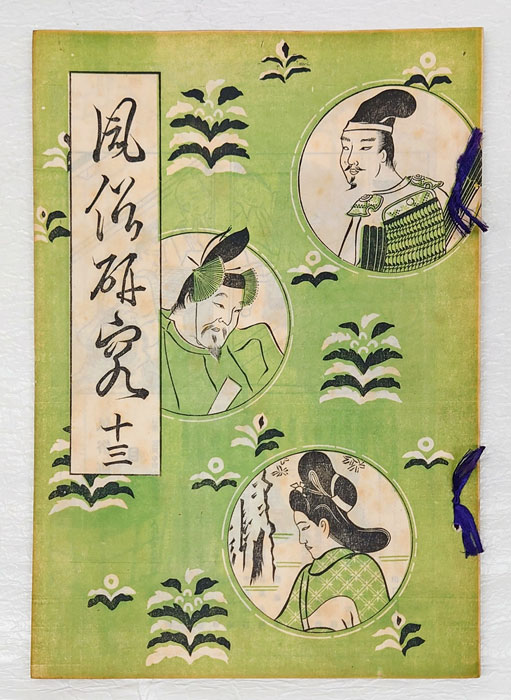 風俗研究 十三